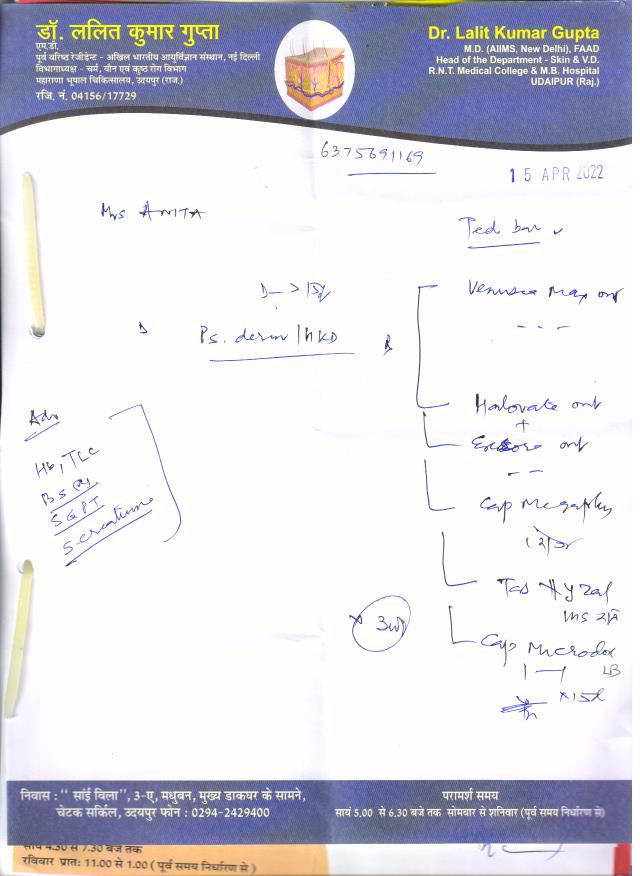 डॉ. ललित कुमार गुप्ता
एम.डी.
पूर्व वरिष्ठ रेजीडेन्ट - अखिल भारतीय आयुर्विज्ञान संस्थान, नई दिल्ली
विभागाध्यक्ष - चर्म, यौन एवं कुष्ठ रोग विभाग
महाराणा भूपाल चिकित्सालय, उदयपुर (राज.)
रजि. नं. 04156/17729
Dr. Lalit Kumar Gupta
M.D. (AIIMS, New Delhi), FAAD
Head of the Department - Skin & V.D.
R.N.T. Medical College & M.B. Hospital
UDAIPUR (Raj.)
6375691169
15 APR 2022
Mrs ANITA
Ted bar
Ps. derm / HKD
Adv
Hb, TLC
BS (R)
SGPT
S. creatinine
Venusia Max ont
- - -
Halovate ont
+
ont
- -
Cap Megaplus
Tab Hyzal
Cap Microdox
LB
1 - 1
x 15d
निवास : " सांई विला", 3-ए, मधुबन, मुख्य डाकघर के सामने,
चेटक सर्किल, उदयपुर फोन : 0294-2429400
परामर्श समय
सायं 5.00 से 6.30 बजे तक सोमवार से शनिवार (पूर्व समय निर्धारण से)
सायं 4.30 से 7.30 बजे तक
रविवार प्रातः 11.00 से 1.00 ( पूर्व समय निर्धारण से )